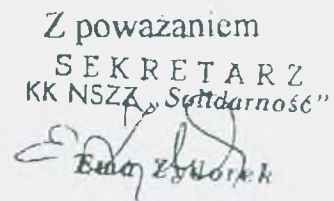 Z poważaniem
SEKRETARZ
KK NSZZ „Solidarność”
Ewa